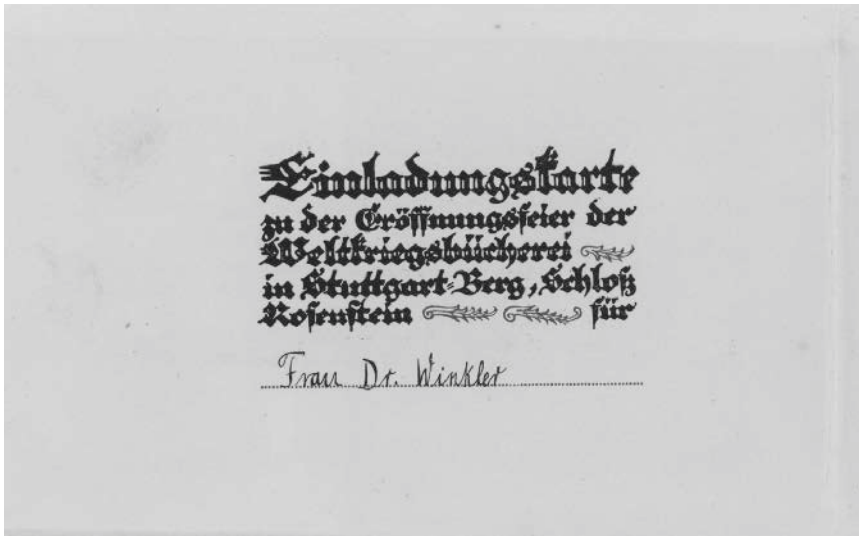 Einladungskarte
zu der Eröffnungsfeier der
Weltkriegsbücherei
in Stuttgart-Berg, Schloß
Rosenstein für
Frau Dr. Winkler